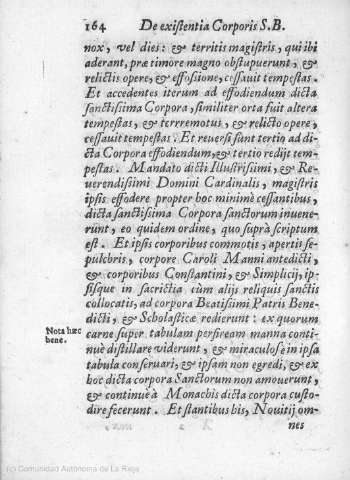 164 De existentia Corporis S.B.
nox, vel dies: & territis magistris, qui ibi
aderant, præ timore magno obstupuerunt, &
relictis opere, & effossione, cessauit tempestas.
Et accedentes iterum ad effodiendum dicta
sanctissima Corpora, similiter orta fuit altera
tempestas, & terrremotus, & relicto opere,
cessauit tempestas. Et reuersi sunt tertiò ad di-
cta Corpora effodiendum, & tertio redijt tem-
pestas. Mandato dicti Illustrissimi, & Re-
uerendissimi Domini Cardinalis, magistris
ipsis effodere propter hoc minimè cessantibus,
dicta sanctissima Corpora sanctorum inuene-
runt, eo quidem ordine, quo suprà scriptum
est. Et ipsis corporibus commotis, apertis se-
pulchris, corpore Caroli Manni antedicti,
& corporibus Constantini, & Simplicij, ip-
sisque in sacrictia cùm alijs reliquis sanctis
collocatis, ad corpora Beatissimi Patris Bene-
dicti, & Scholasticæ redierunt: ex quorum
Nota hæc bene.
carne super tabulam persiream manna conti-
nuè distillare viderunt, & miraculosè in ipsa
tabula conseruari, & ipsam non egredi, & ex
hoc dicta corpora Sanctorum non amouerunt,
& continuè à Monachis dicta corpora custo-
dire fecerunt. Et stantibus his, Nouitij om-
nes
(c) Comunidad Autónoma de La Rioja